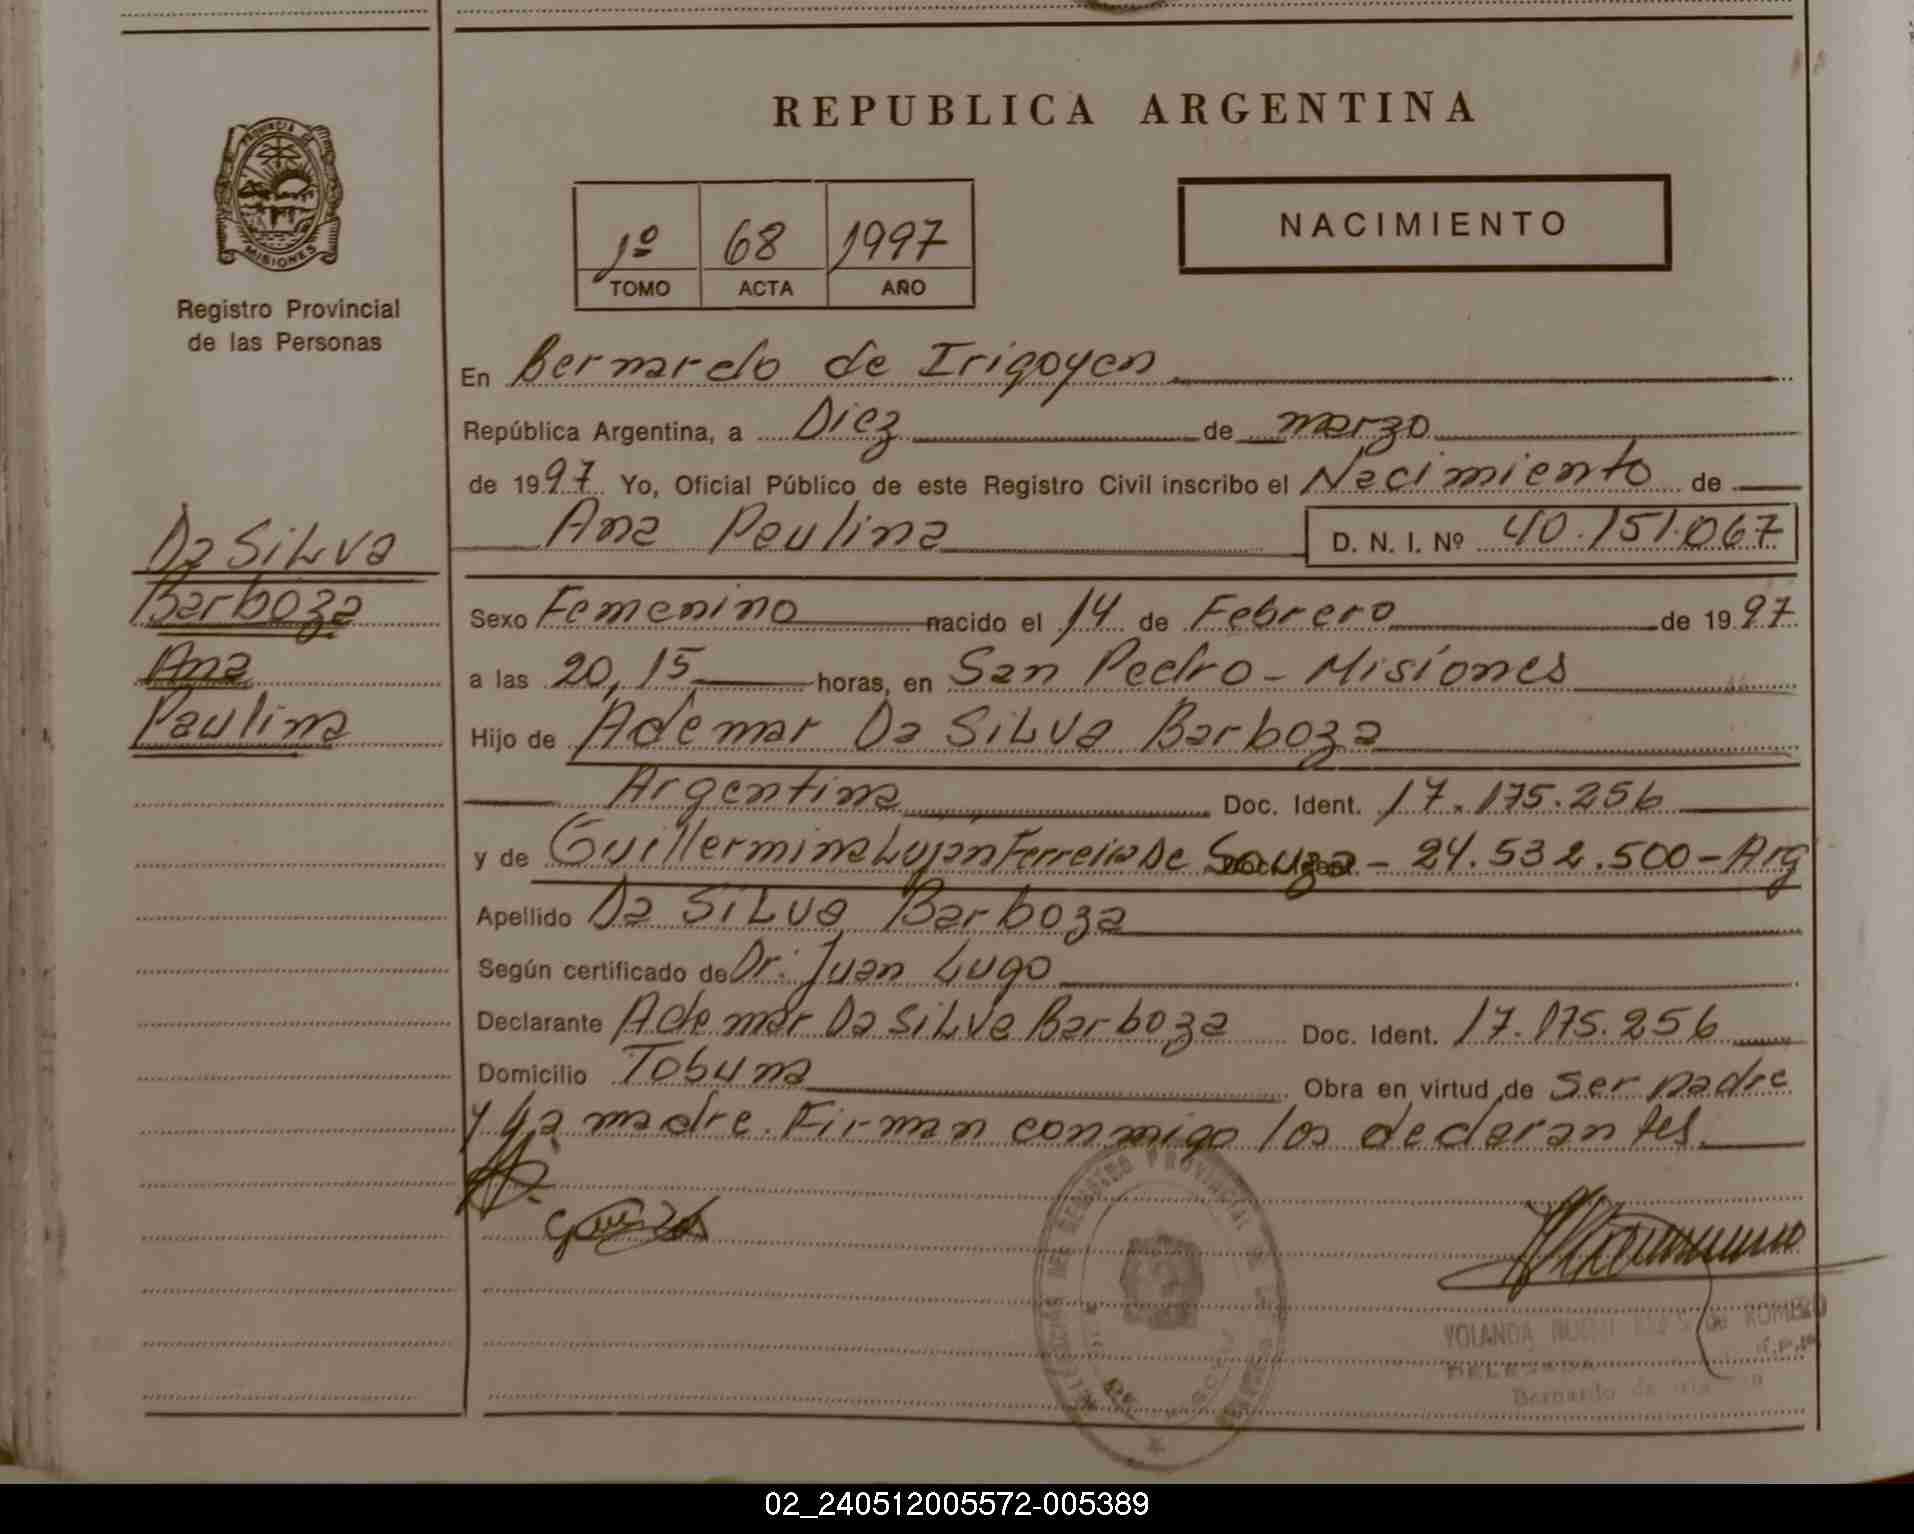 REPUBLICA ARGENTINA
PROVINCIA DE
MISIONES
Registro Provincial
de las Personas
1º 68 1997
TOMO ACTA AÑO
NACIMIENTO
En Bernardo de Irigoyen
República Argentina, a Diez de marzo
de 1997 Yo, Oficial Público de este Registro Civil inscribo el Nacimiento de
Ana Paulina D. N. I. Nº 40.151.067
Da SiLva
Barboza
Ana
Paulina
Sexo Femenino nacido el 14 de Febrero de 1997
a las 20,15 horas, en San Pedro - Misiones
Hijo de Ademar Da SiLva Barboza
Argentina Doc. Ident. 17.175.256
y de Guillermina Luján Ferreira De Souza - 24.532.500 - Arg
Apellido Da SiLva Barboza
Según certificado de Dr. Juan Lugo
Declarante Ademar Da SiLva Barboza Doc. Ident. 17.175.256
Domicilio Tobuna Obra en virtud de ser padre
y La madre. Firman conmigo los declarantes.
REGISTRO PROVINCIAL DE LAS
YOLANDA de ROMERO
DELEGADA
Bernardo de
02_240512005572-005389